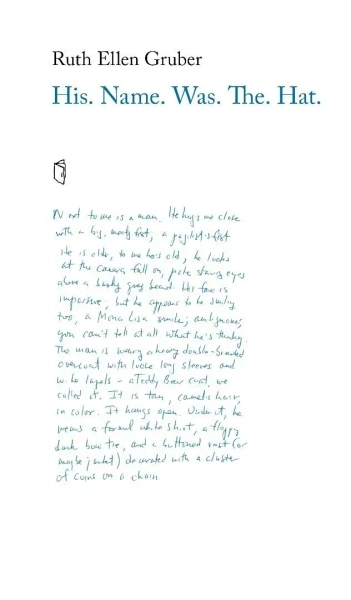 Ruth Ellen Gruber
His. Name. Was. The. Hat.
Next to me is a man. He hugs me close
with a big, meaty fist, a pugilist's fist
He is older, to me he's old, he looks
at the camera full on, pale staring eyes
above a bushy grey beard. His face is
impassive, but he appears to be smiling
too, a Mona Lisa smile; ambiguous;
you can't tell at all what he's thinking
The man is wearing a heavy double-breasted
overcoat with loose long sleeves and
wide lapels - a Teddy Bear coat, we
called it. It is tan, camels hair,
in color. It hangs open. Under it, he
wears a formal white shirt, a floppy
dark bow tie, and a buttoned vest (or
maybe jacket) decorated with a cluster
of coins on a chain